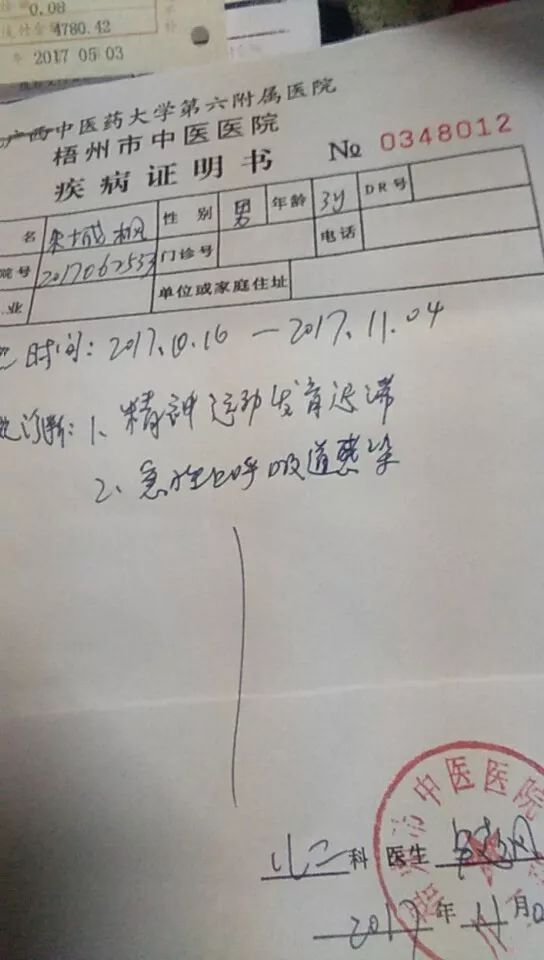 0.08
4780.42
年 2017 05 03
广西中医药大学第六附属医院
梧州市中医医院
疾病证明书 No 0348012
名 性别 男 年龄 3y DR号
院号 2017062533 门诊号 电话
业 单位或家庭住址
时间: 2017.10.16 — 2017.11.04
诊断: 1、精神运动发育迟滞
2、急性上呼吸道感染
儿二科 医生
2017年11月0
中医医院